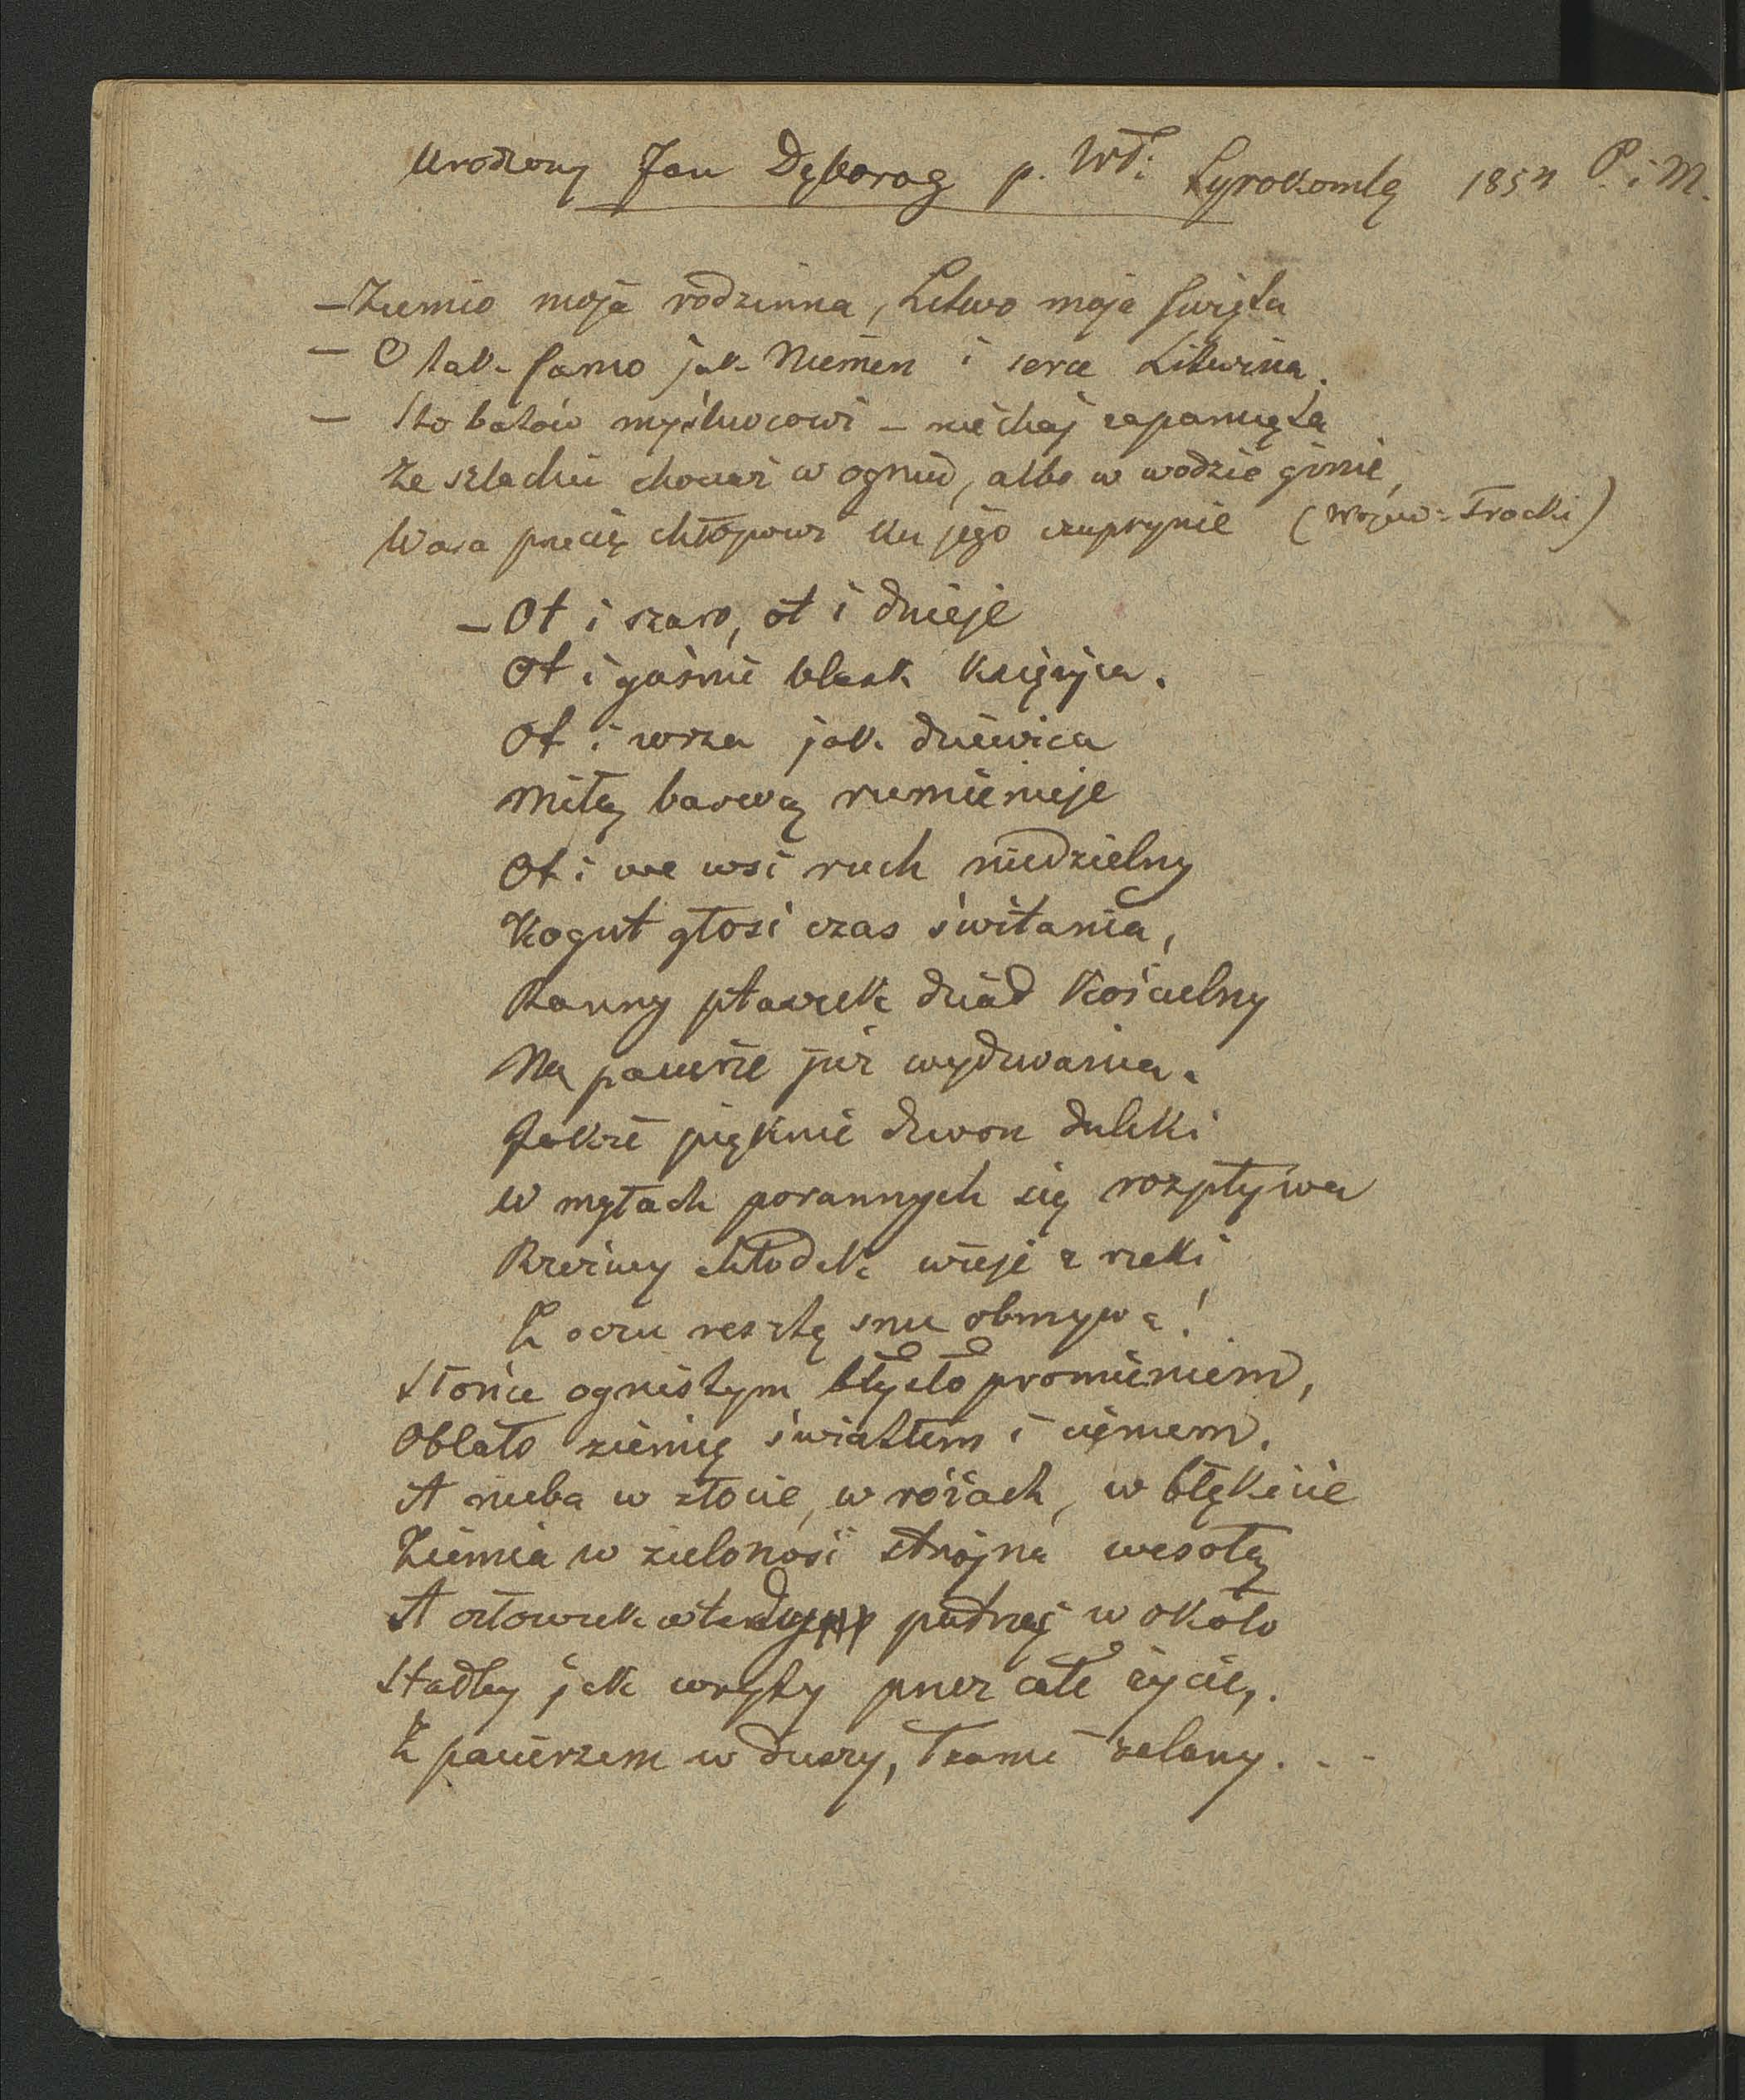 Urodzony Jan Dęboróg p. Wł: Syrokomlę 1854 P. i M.
– Ziemio moja rodzinna, Litwo moja święta
– O tak samo jak Niemen i serce Litwina.
– Sto batów myśliwcowi – niechaj zapamięta
Że szlachcic chociaż w ogniu, albo w wodzie ginie,
Wara przecię chłopowi ku jego czuprynie (Wojew: Trocki)
– Ot i szaro, ot i dnieje
Ot i gaśnie blask księżyca.
Ot i zorza jak dziewica
Miłą barwą rumienieje
Ot i we wsi ruch niedzielny
Kogut głosi czas świtania,
Ranny ptaszek dziad kościelny
Na pacierze już wydzwania.
Jakże pięknie dzwon daleki
W mgłach porannych się rozpływa
Rzeźwy chłodek wieje z rzeki
Z oczu resztę snu obmywa!
Słońce ognistym błysło promieniem,
Oblało ziemię światłem i cieniem.
A nieba w złocie, w różach, w błękicie
Ziemia w zieloność strojna wesołą
A człowiek wtedy patrząc w około
Stałby jak wryty przez całe życie,
Z pacierzem w duszy, łzami zalany. . -